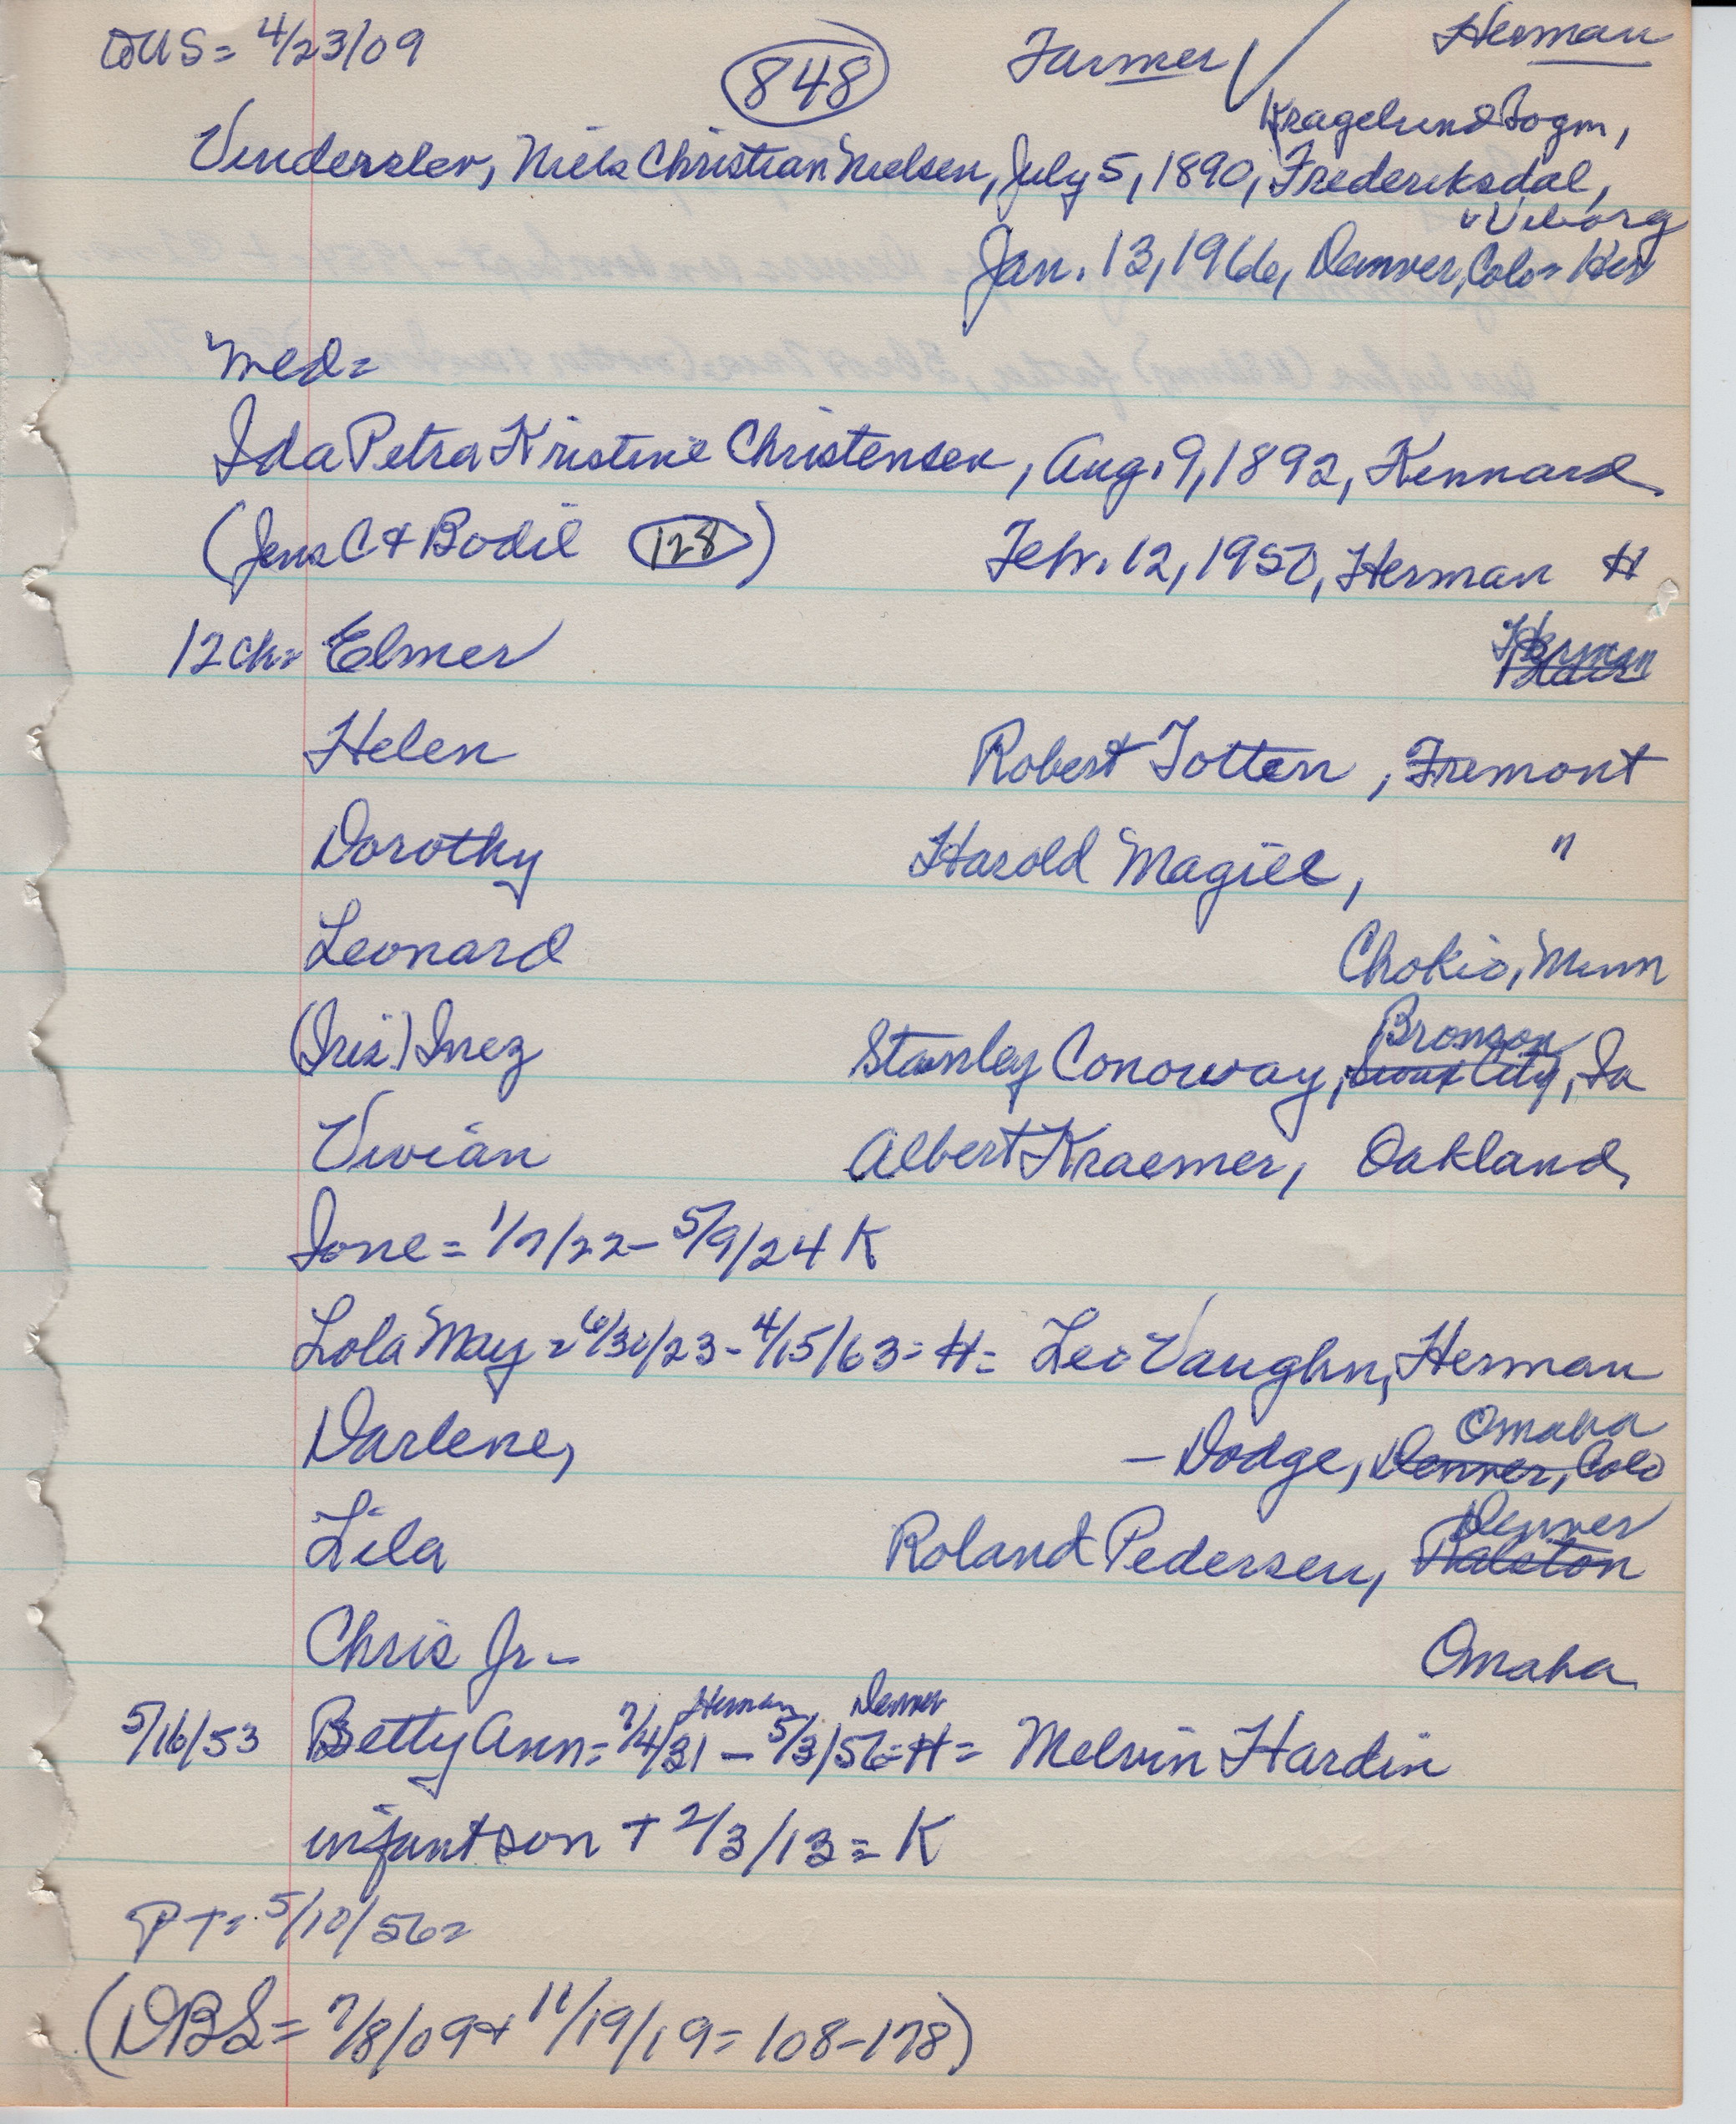 TUS = 4/23/09 848 Farmer Herman
Kragelund Sogn,
Vinderslev, Niels Christian Nielsen, July 5, 1890, Frederiksdal,
v. Viborg
Jan. 13, 1966, Denver, Colo =
med =
Ida Petra Kristine Christensen, Aug. 9, 1892, Kennard
(Jens C + Bodil 128) Febr. 12, 1950, Herman H
12 ch = Elmer Herman
Helen Robert Totten, Fremont
Dorothy Harold Magill, "
Leonard Chokio, Minn
Bronson
(Iris) Inez Stanley Conoway, Sioux City, Ia
Vivian Albert Kraemer, Oakland
Ione = 1/7/22 - 5/9/24 K
Lola May = 6/30/23 - 4/15/63 = H = Leo Vaughn, Herman
Omaha
Darlene, - Dodge, Denver, Colo
Denver
Lila Roland Pedersen, Ralston
Chris Jr - Omaha
Herman Denver
5/16/53 Betty Ann = 7/4/31 - 5/3/56 = H = Melvin Hardin
infant son + 2/3/13 = K
PT = 5/10/56 =
(DBL = 7/8/09 + 11/19/19 = 108-178)